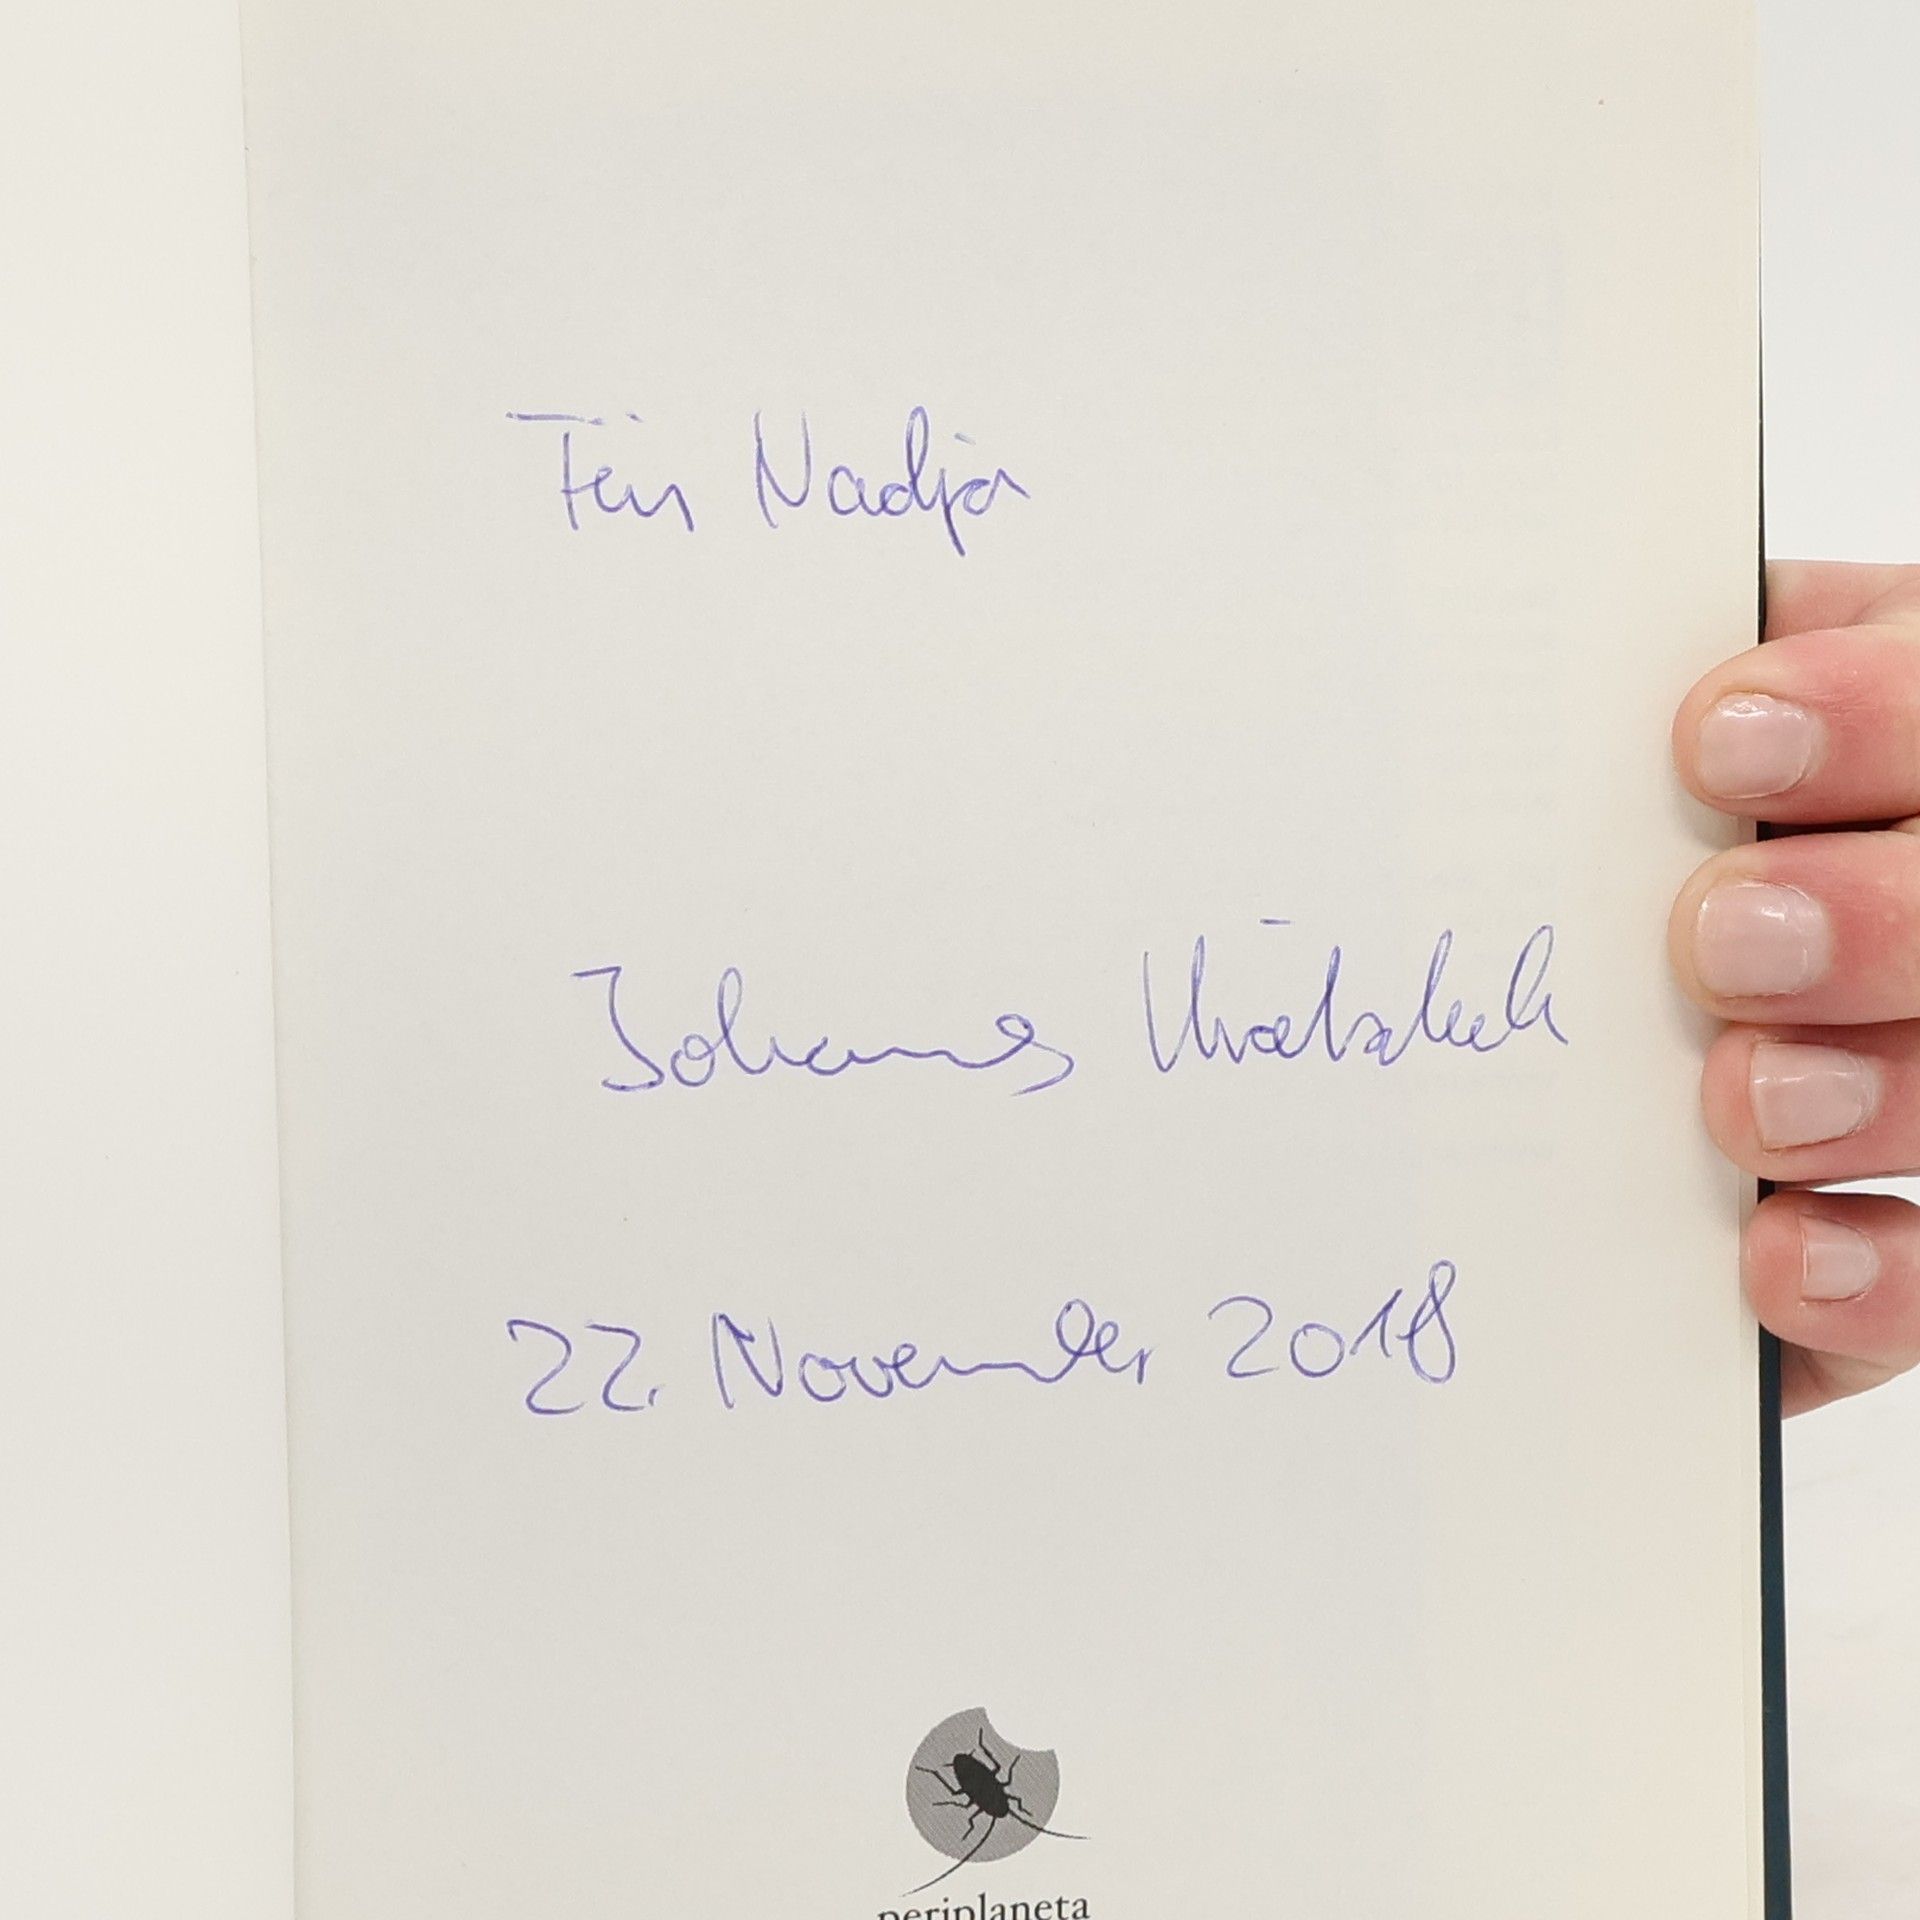 Für Nadja
Johannes
22. November 2018
periplaneta